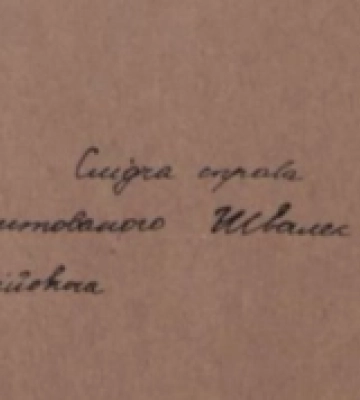 Слідча справа
итованого Швалек
ійовича